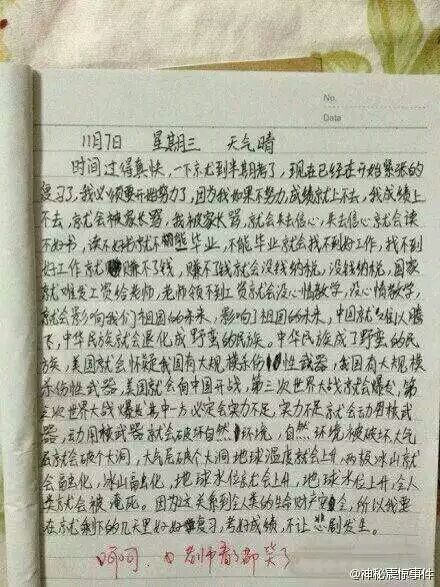 No.
Date
11月7日 星期三 天气晴
时间过得真快,一下京尤到半期考了,现在已经走开始紧张的
复习了,我必须要开始努力了,因为我如果不努力,成绩就上不去,我成绩上
不去,就会被家长骂,我被家长骂,就会失去信心,失去信心就会读
不好书,读不好书就不能毕业,不能毕业就会找不到好工作,找不到
好工作就赚不了钱,赚不了钱就会没钱纳税,没钱纳税,国家
就难发工资给老师,老师领不到工资就会没心情教学,没心情教学,
就会影响我们祖国的未来,影响了祖国的未来,中国就难以腾
飞,中华民族就会退化成野蛮的民族。中华民族成了野蛮的民
族,美国就会怀疑我国有大规模杀伤性武器,我国有大规模
杀伤性武器,美国就会向中国开战,第三次世界大战就会爆发,第
三次世界大战爆发其中一方必定会实力不足,实力不足就会动用核武
器,动用核武器就会破坏自然环境,自然环境被破坏大气
层就会破个大洞,大气层破个大洞地球温度就会上升,两极冰山就
会融化,冰山融化,地球水位就会上升,地球水位上升,全人
类就会被淹死。因为这关系到全人类的生命财产安全,所以我要
在就剩下的几天里好好复习,考好成绩,不让悲剧发生。
呵呵, 老师看了都笑了
@神秘震惊事件